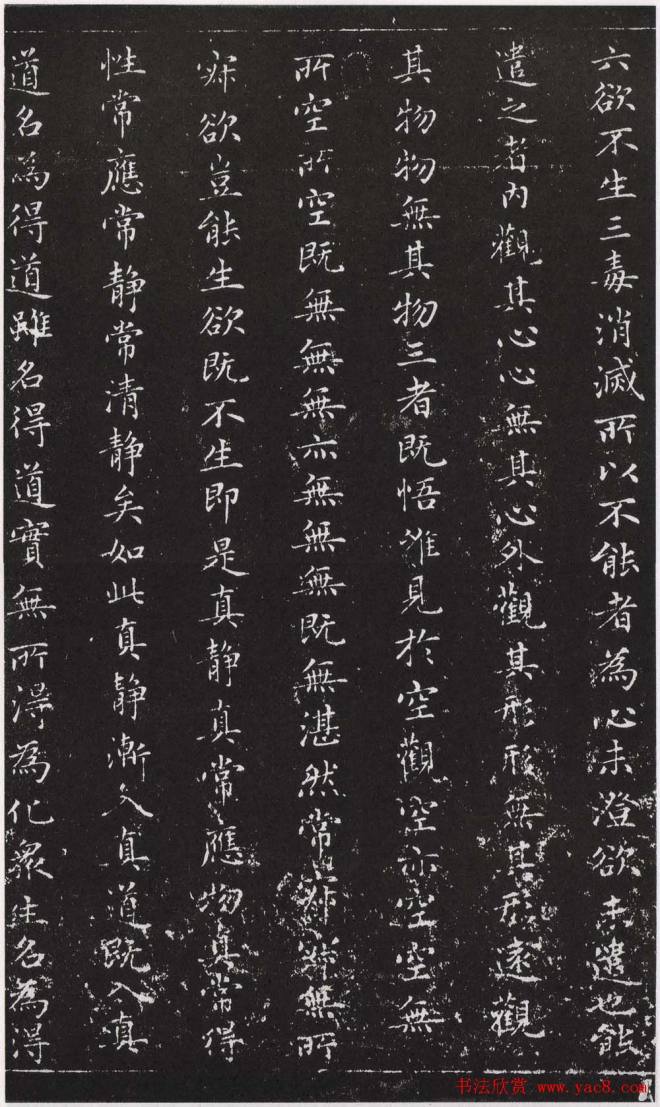 六欲不生三毒消滅所以不能者為心未澄欲未遣也能
遣之者內觀其心心無其心外觀其形形無其形遠觀
其物物無其物三者既悟唯見於空觀空亦空空無
所空所空既無無無亦無無無既無湛然常寂寂無所
寂欲豈能生欲既不生即是真静真常應物真常得
性常應常静常清静矣如此真静漸入真道既入真
道名為得道雖名得道實無所得為化衆生名為得
书法欣赏 www.yac8.com